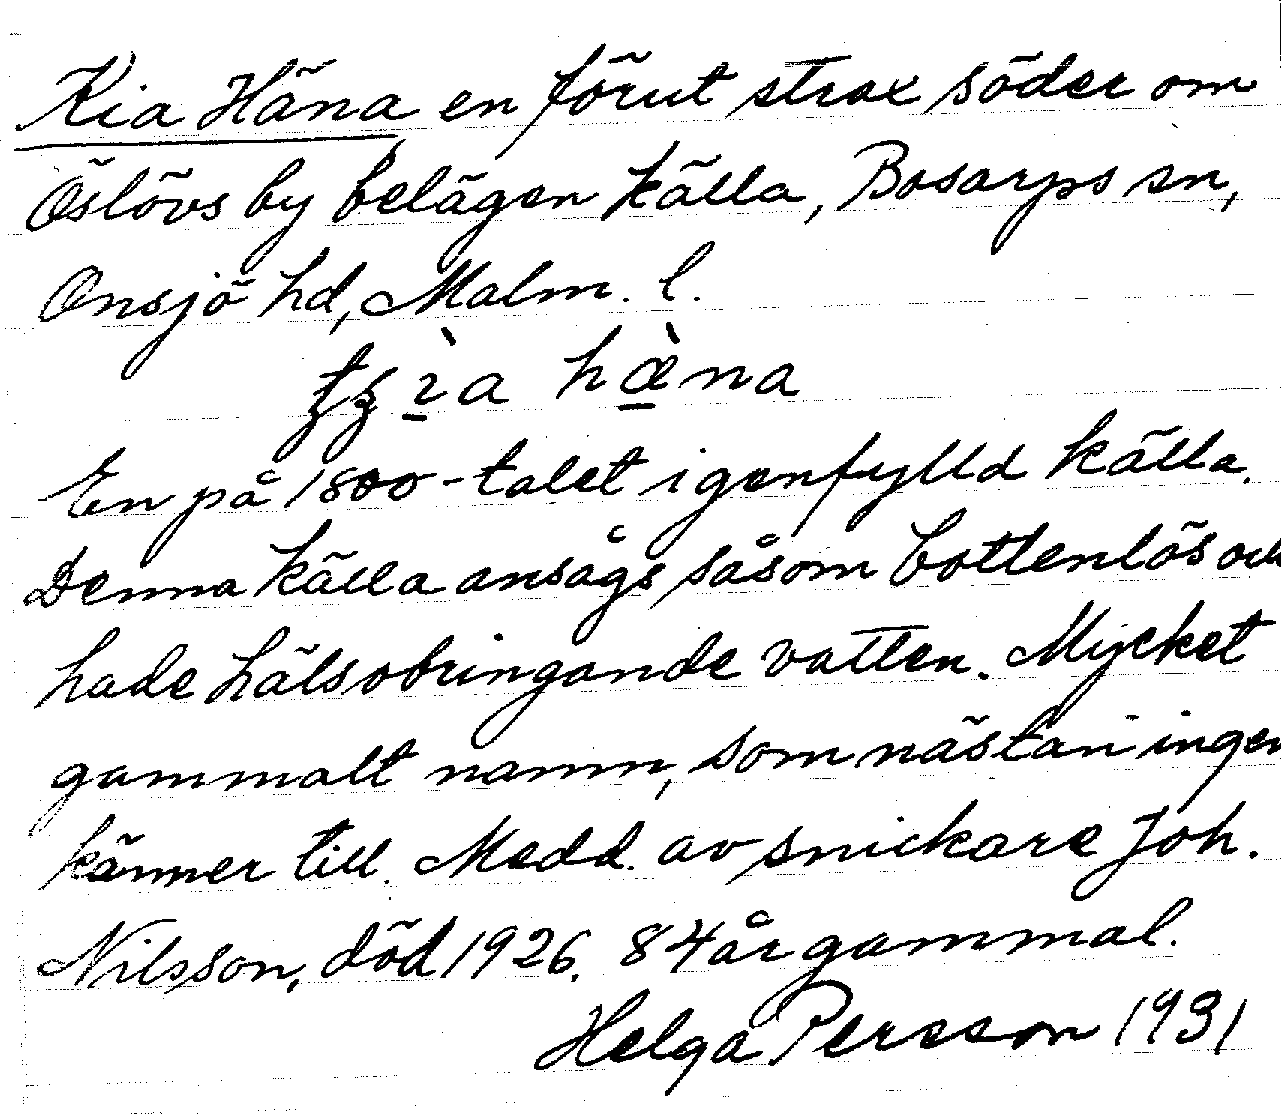 Kia Häna en förut strax söder om
Öslövs by belägen källa, Bosarps sn,
Onsjö hd, Malm. l.
hæ̀na
En på 1800-talet igenfylld källa.
Denna källa ansågs såsom bottenlös och
hade hälsobringande vatten. Mycket
gammalt namn, som nästan ingen
känner till. Medd. av snickare Joh.
Nilsson, död 1926. 84 år gammal.
Helga Persson 1931